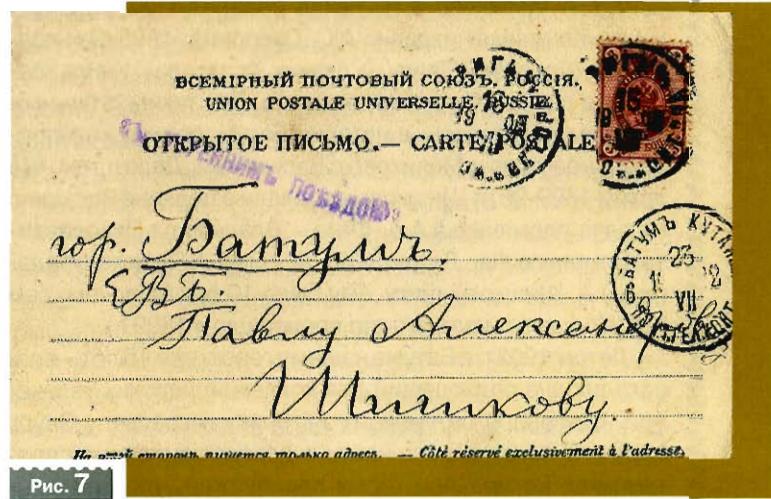 ВСЕМІРНЫЙ ПОЧТОВЫЙ СОЮЗЪ. РОССІЯ.
UNION POSTALE UNIVERSELLE. RUSSIE
ОТКРЫТОЕ ПИСЬМО.— CARTE POSTALE
ПОѢЗДОМЪ
РИГА
16
19
гор. Батумъ.
БАТУМЪ КУТАИС
23
VII
ЕВБ.
Павлу Александровичу
Шишкову.
На этой сторонѣ пишется только адресъ. — Côté réservé exclusivement à l'adresse.
Рис. 7